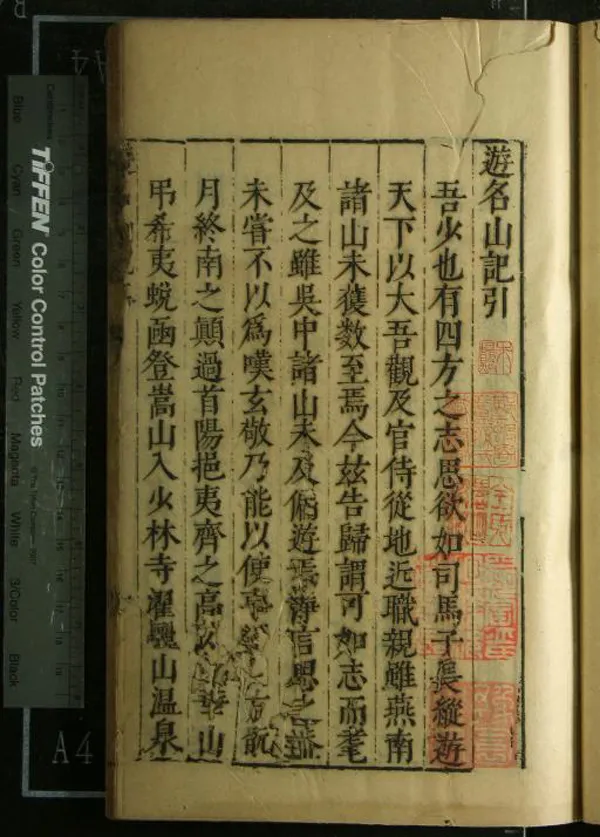 遊名山記引
吾少也有四方之志思欲如司馬子長縱遊
天下以大吾觀及官侍從地近職親雖燕南
諸山未獲数至焉今兹告歸謂可如志而耄
及之雖吳中諸山未及徧遊焉海官思
未嘗不以爲嘆玄敬乃能以便 方
月終南之顛過首陽挹夷齊之高 華山
弔希夷蛻函登嵩山入少林寺濯驪山温泉
TIFFEN Color Control Patches
© The Tiffen Company, 2007
Centimetres
Blue
Cyan
Green
Yellow
Red
Magenta
White
3/Color
Black
A4
A4
B